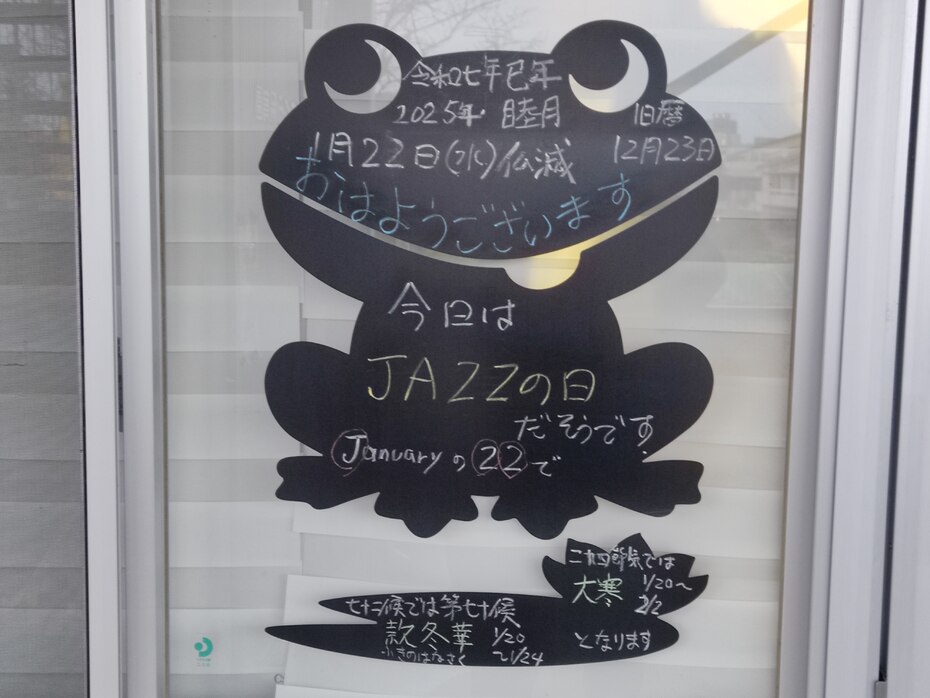 令和七年巳年
2025年 睦月 旧暦
1月22日(水)仏滅 12月23日
おはようございます
今日は
JAZZの日
だそうです
Januaryの22で
二十四節気では
大寒 1/20〜
2/2
となります
七十二候では第七十候
款冬華 1/20
ふきのはなさく 〜1/24